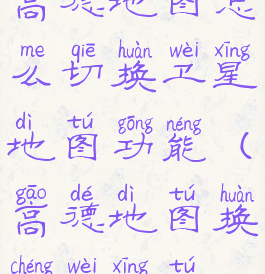 高德地图怎
me qiē huàn wèi xīng
么切换卫星
dì tú gōng néng
地图功能（
gāo dé dì tú huàn
高德地图换
chéng wèi xīng tú